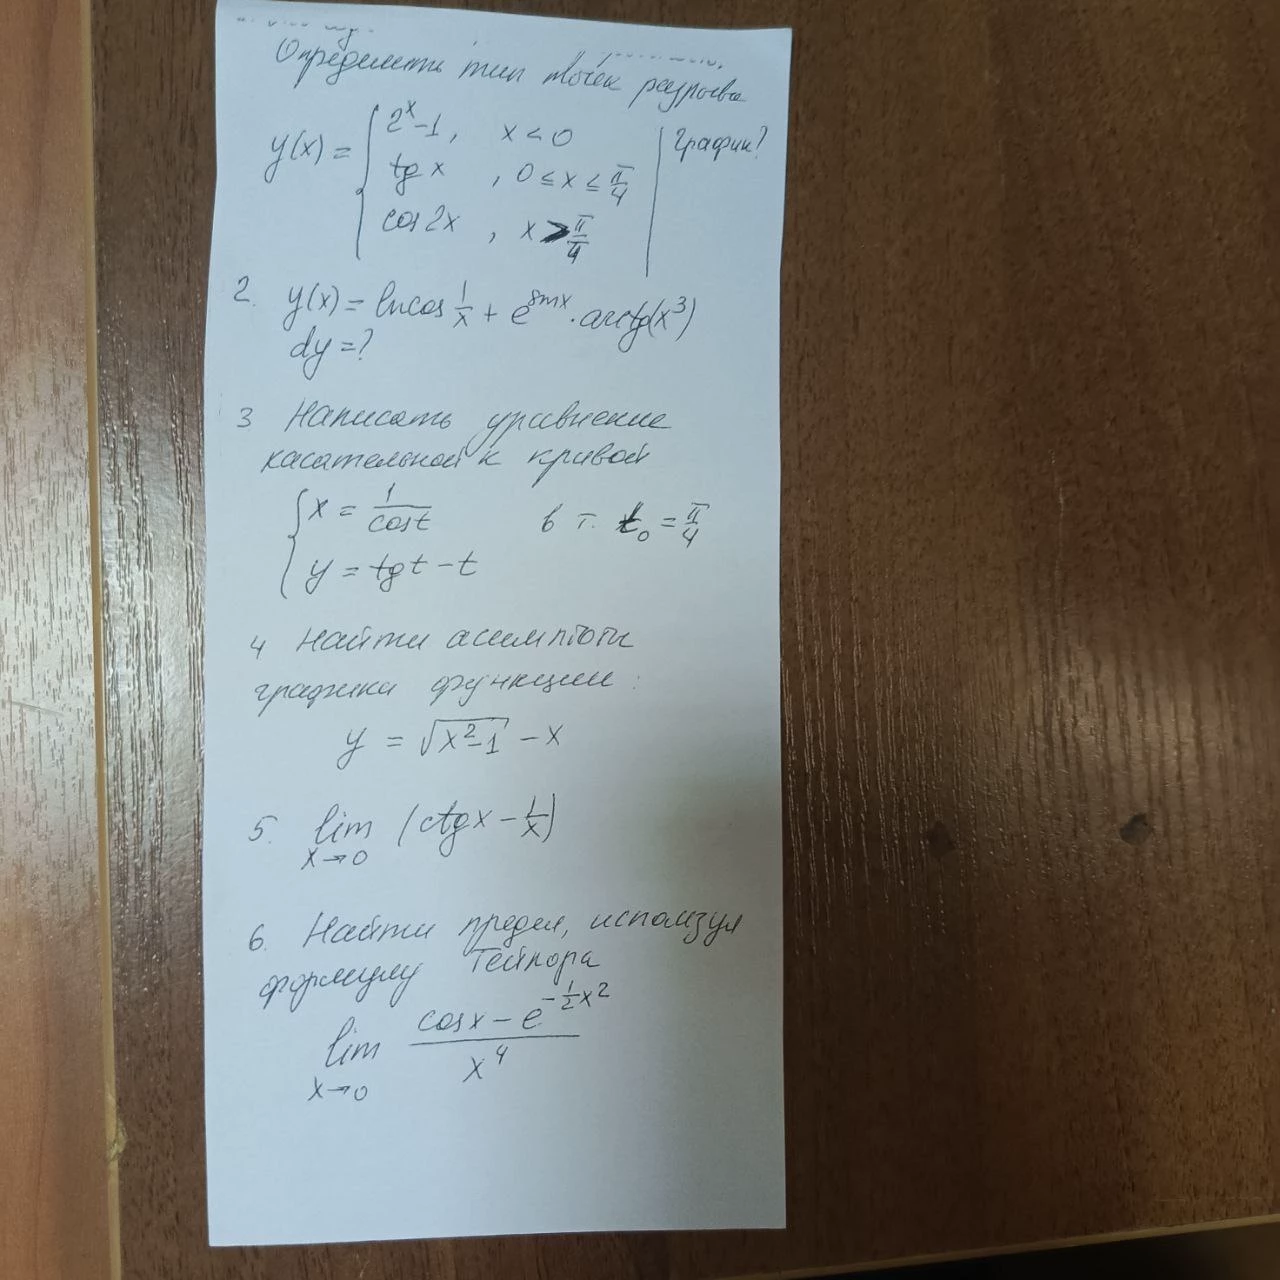 Определить тип точек разрыва
y(x) = { 2^x - 1, x < 0 | График?
tg x, 0 ≤ x ≤ π/4
cos 2x, x > π/4
2. y(x) = ln cos 1/x + e^{sin x} · arctg(x^3)
dy = ?
3 Написать уравнение
касательной к кривой
{ x = 1/cos t в т. t_0 = π/4
y = tg t - t
4 Найти асимптоты
графика функции:
y = √(x^2-1) - x
5. lim_{x→0} (ctg x - 1/x)
6. Найти предел, используя
формулу Тейлора
lim_{x→0} (cos x - e^{-1/2 x^2}) / x^4